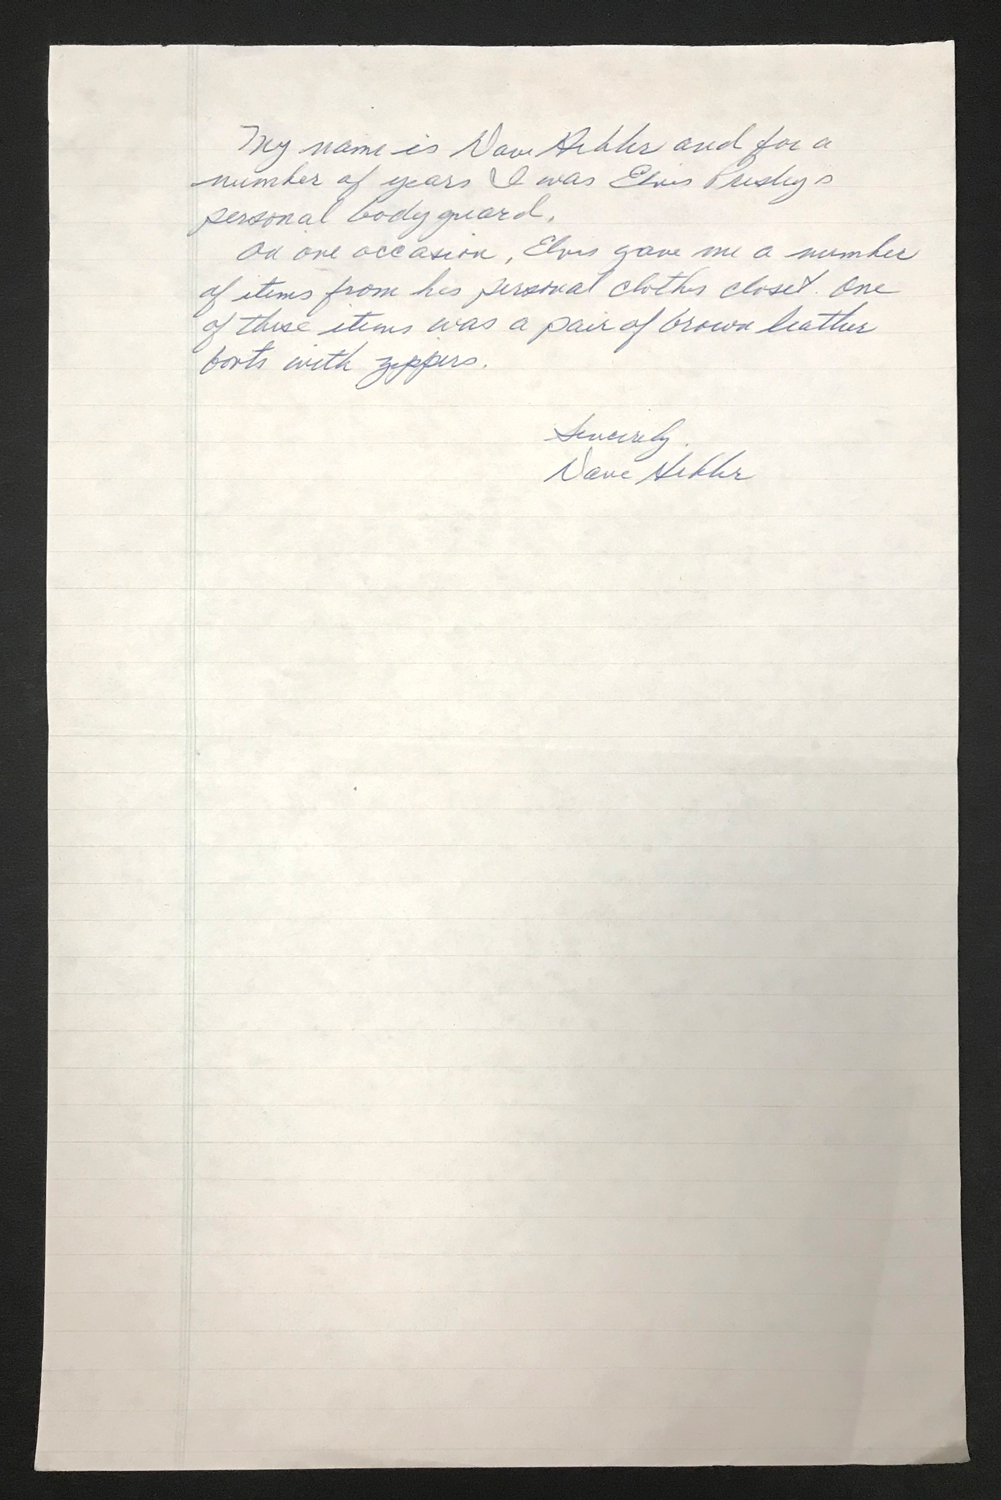 My name is Dave Hebler and for a
number of years I was Elvis Presley's
personal bodyguard.
On one occasion, Elvis gave me a number
of items from his personal clothes closet. One
of these items was a pair of brown leather
boots with zippers.
Sincerely,
Dave Hebler